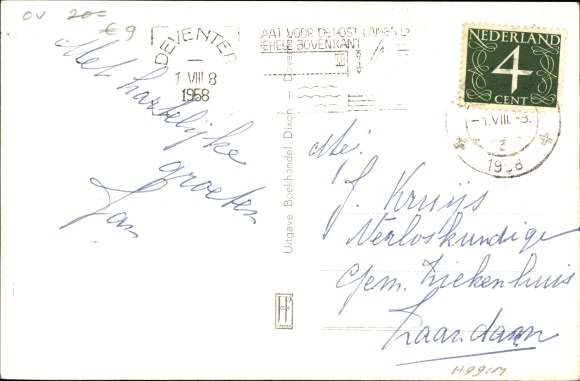 OV 200
€9
DEVENTER
1 VIII 8
1958
AAT VOOR DE POST LANGS D
EHELE BOVENKANT
NEDERLAND
4
CENT
-1.VIII.-8.
1958
Met hartelijke
groeten
Jan
Uitgave Boekhandel Dixon — Deventer
Mej.
J. Kruijs
Verloskundige
Gem. Ziekenhuis
Zaandam